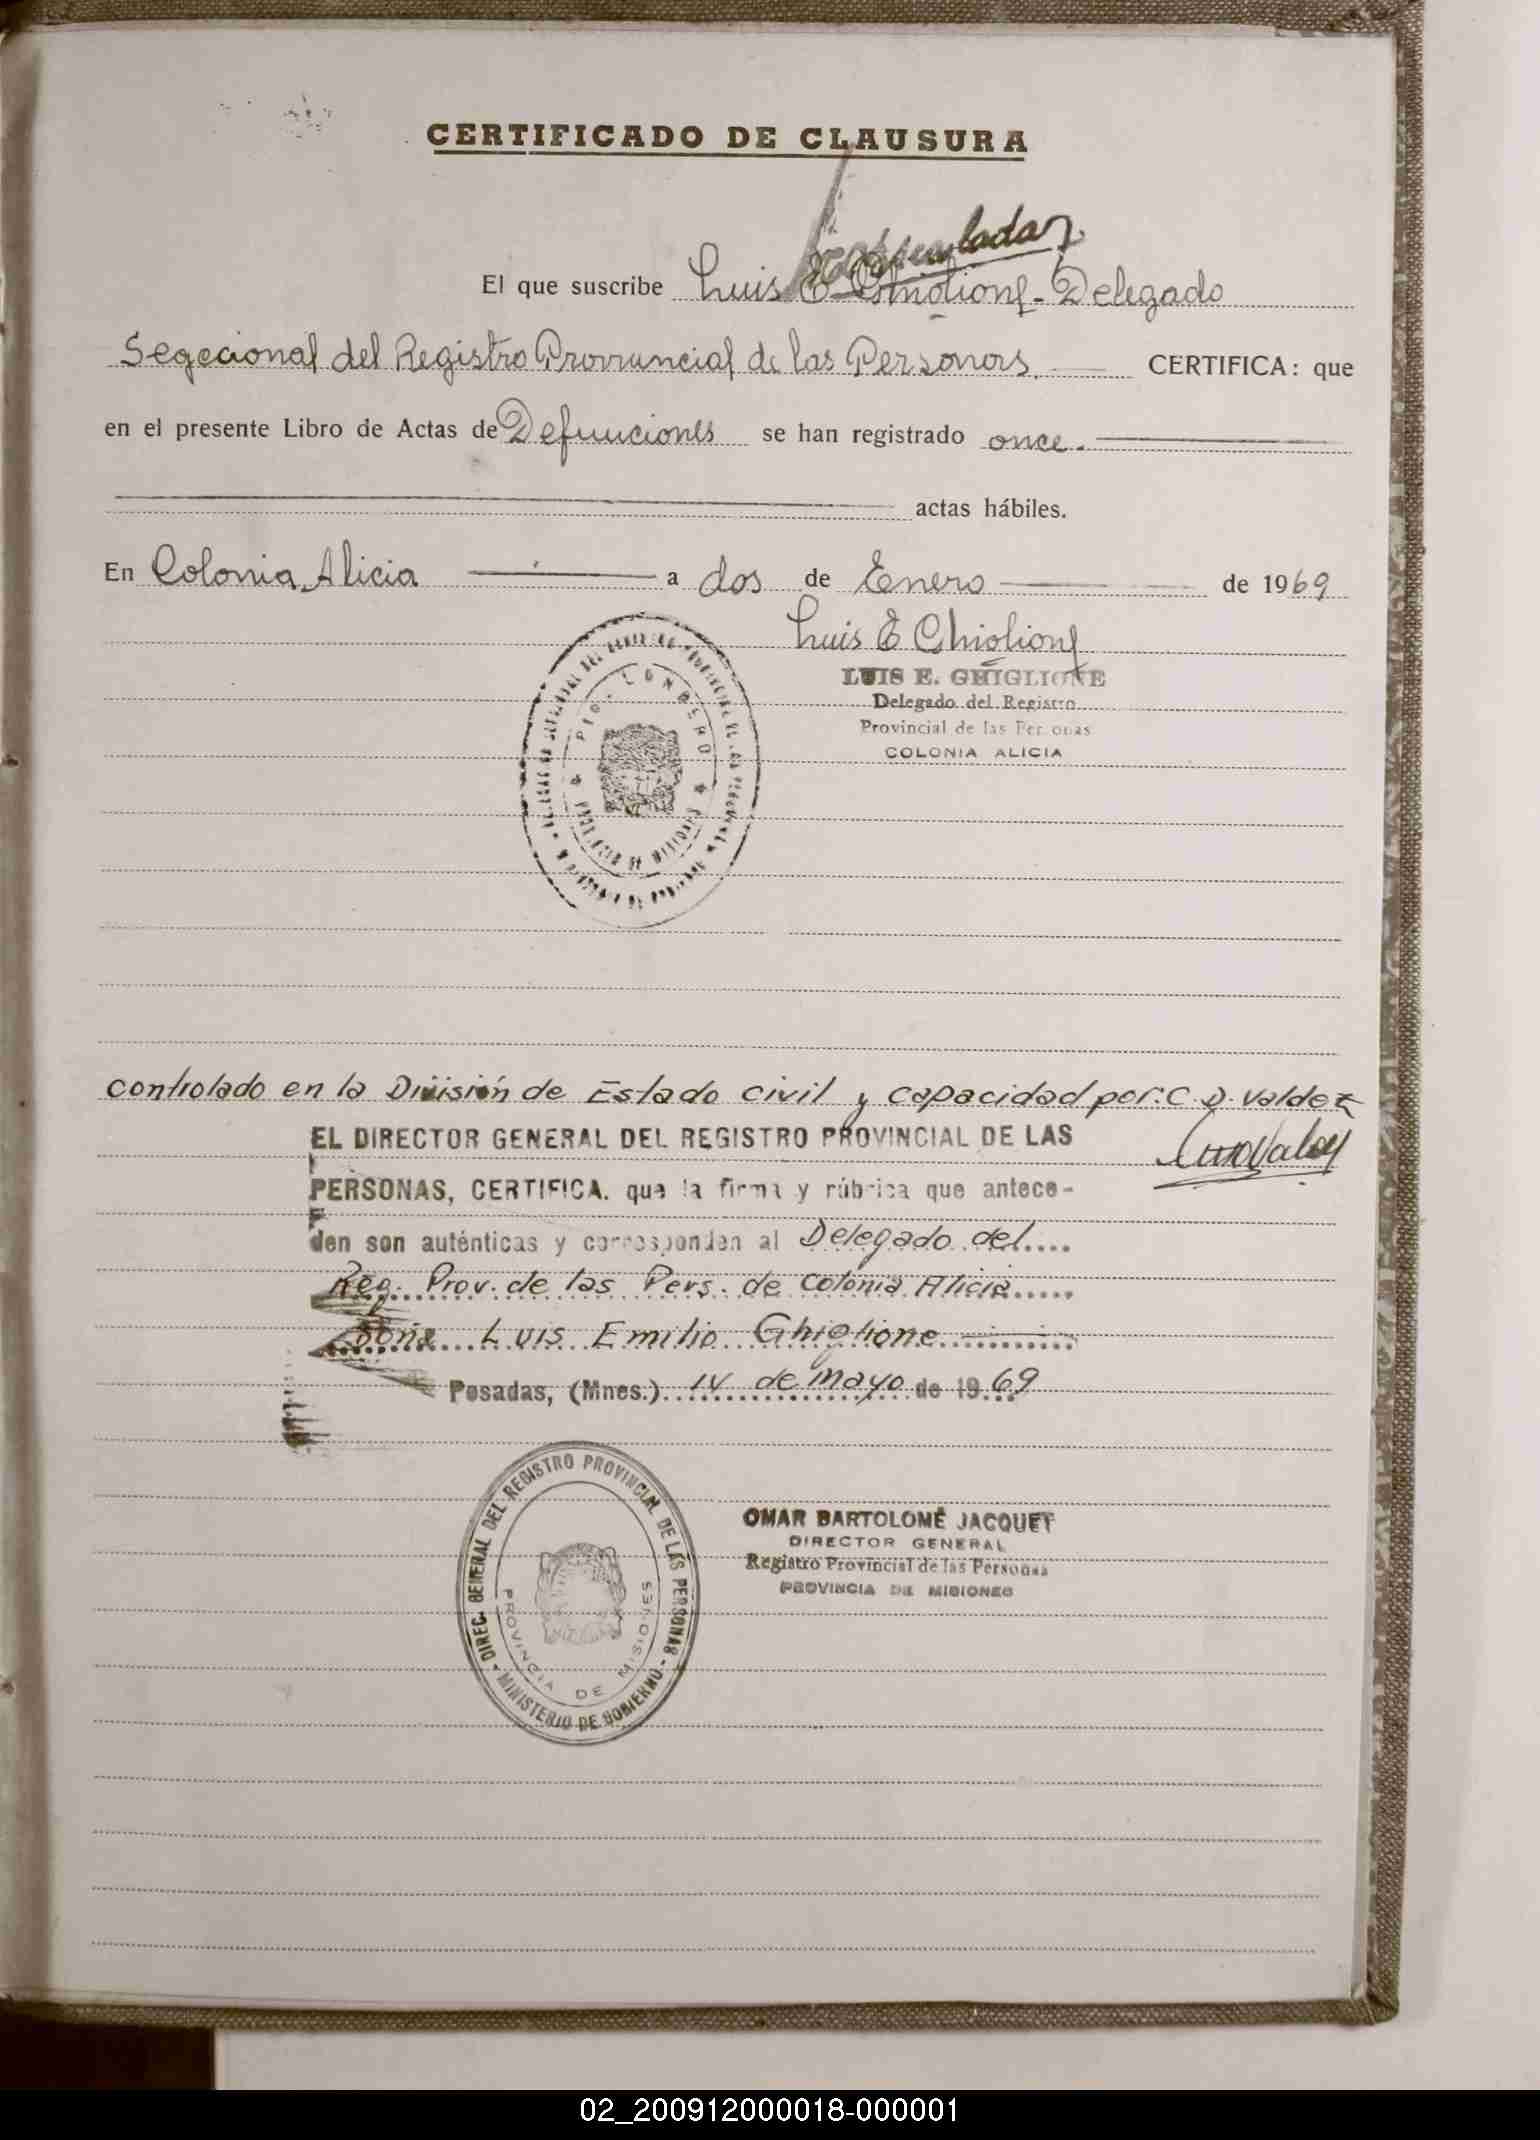 CERTIFICADO DE CLAUSURA
El que suscribe Luis E Ghiglione - Delegado
Segecional del Registro Provruncial de las Personas. CERTIFICA: que
en el presente Libro de Actas de Defunciones se han registrado once.
actas hábiles.
En Colonia Alicia a dos de Enero de 1969
Luis E Ghiglione
LUIS E. GHIGLIONE
Delegado del Registro
Provincial de las Personas
COLONIA ALICIA
PTO. LONDERO
PROVINCIA DE MISIONES
controlado en la División de Estado Civil y Capacidad por: C. D. Valdez
EL DIRECTOR GENERAL DEL REGISTRO PROVINCIAL DE LAS
PERSONAS, CERTIFICA. que la firma y rúbrica que antece-
den son auténticas y corresponden al Delegado del....
Reg. Prov. de las Pers. de Colonia Alicia.....
Luis Emilio Ghiglione
Posadas, (Mnes.) 14 de mayo de 1969
DIREC. GENERAL DEL REGISTRO PROVINCIAL DE LAS PERSONAS - MINISTERIO DE GOBIERNO -
PROVINCIA DE MISIONES
OMAR BARTOLOMÉ JACQUET
DIRECTOR GENERAL
Registro Provincial de las Personas
PROVINCIA DE MISIONES
02_200912000018-000001